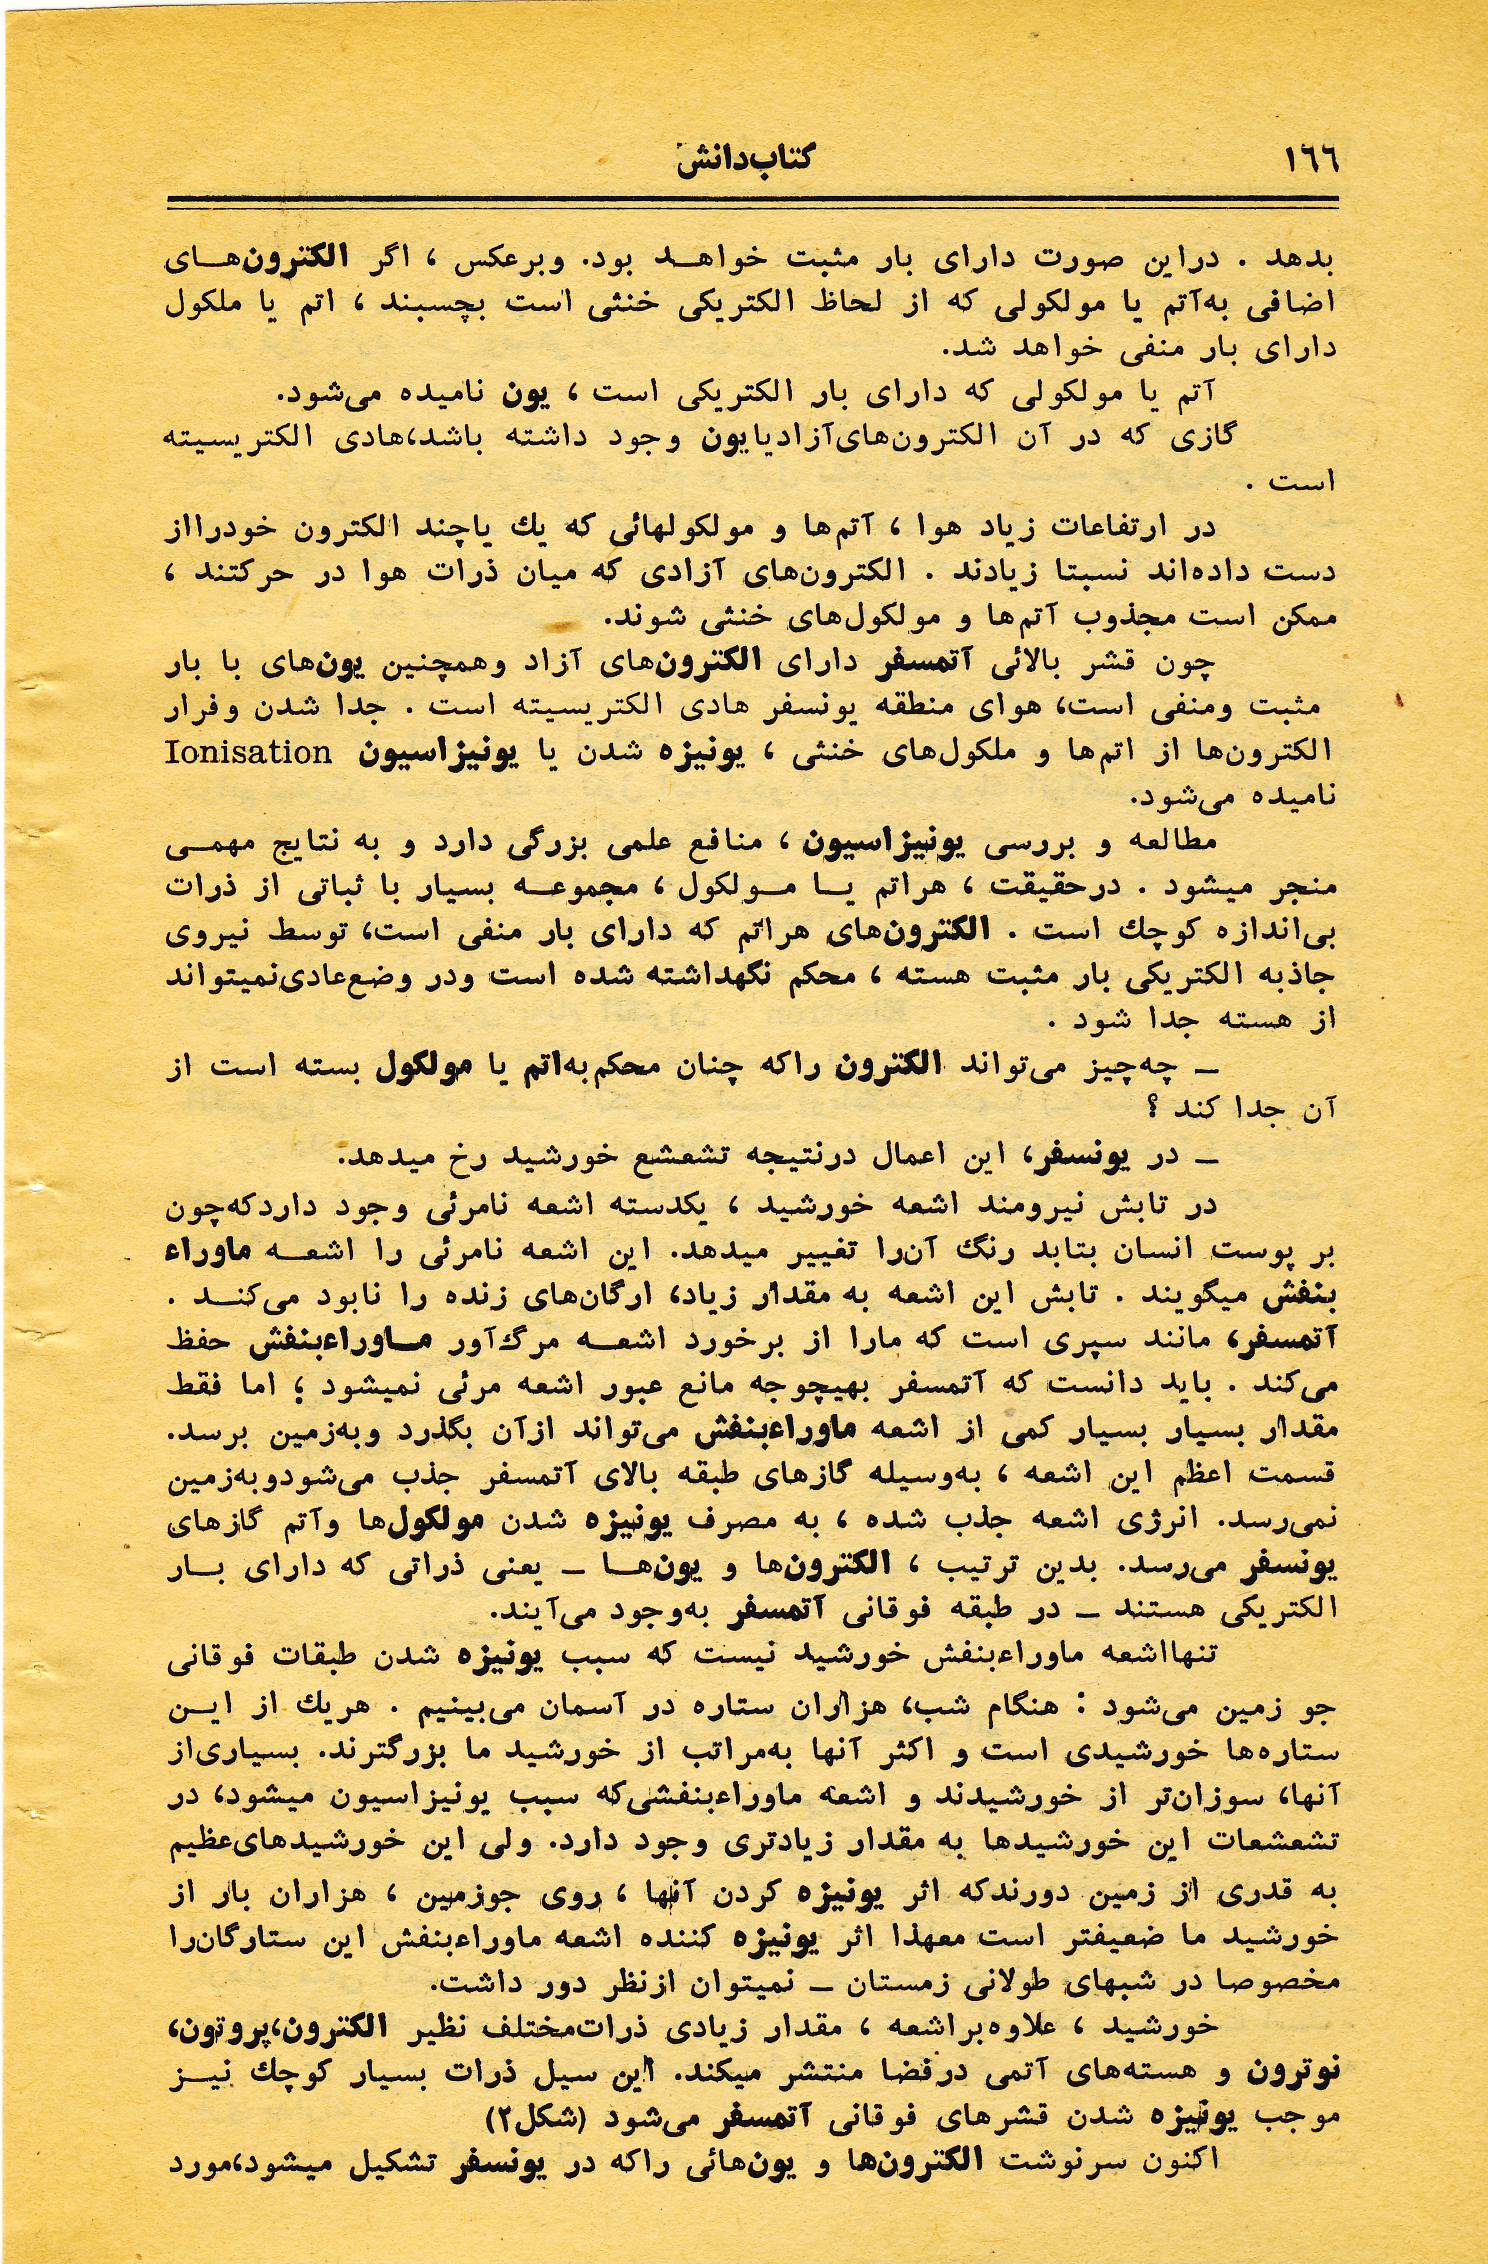 ۱۶۶
کتاب‌دانش
بدهد . دراین صورت دارای بار مثبت خواهـد بود. وبرعکس ، اگر الکترون‌هـای
اضافی به‌آتم یا مولکولی که از لحاظ الکتریکی خنثی است بچسبند ، اتم یا ملکول
دارای بار منفی خواهد شد.
آتم یا مولکولی که دارای بار الکتریکی است ، یون نامیده می‌شود.
گازی که در آن الکترون‌های‌آزادیایون وجود داشته باشد،هادی الکتریسیته
است .
در ارتفاعات زیاد هوا ، آتم‌ها و مولکولهائی که یك یاچند الکترون خودرااز
دست داده‌اند نسبتا زیادند . الکترون‌های آزادی که میان ذرات هوا در حرکتند ،
ممکن است مجذوب آتم‌ها و مولکول‌های خنثی شوند.
چون قشر بالائی آتمسفر دارای الکترون‌های آزاد وهمچنین یون‌های با بار
مثبت ومنفی است، هوای منطقه یونسفر هادی الکتریسیته است . جدا شدن وفرار
الکترون‌ها از اتم‌ها و ملکول‌های خنثی ، یونیزه شدن یا یونیزاسیون Ionisation
نامیده می‌شود.
مطالعه و بررسی یونیزاسیون ، منافع علمی بزرگی دارد و به نتایج مهمـی
منجر میشود . درحقیقت ، هراتم یـا مـولکول ، مجموعـه بسیار با ثباتی از ذرات
بی‌اندازه کوچك است . الکترون‌های هراتم که دارای بار منفی است، توسط نیروی
جاذبه الکتریکی بار مثبت هسته ، محکم نگهداشته شده است ودر وضع‌عادی‌نمیتواند
از هسته جدا شود .
ـ چه‌چیز می‌تواند الکترون راکه چنان محکم‌به‌اتم یا مولکول بسته است از
آن جدا کند ؟
ـ در یونسفر، این اعمال درنتیجه تشعشع خورشید رخ میدهد.
در تابش نیرومند اشعه خورشید ، یکدسته اشعه نامرئی وجود داردکه‌چون
بر پوست انسان بتابد رنگ آن‌را تغییر میدهد. این اشعه نامرئی را اشعـه ماوراء
بنفش میگویند . تابش این اشعه به مقدار زیاد، ارگان‌های زنده را نابود می‌کنـد .
آتمسفر، مانند سپری است که مارا از برخورد اشعـه مرگ‌آور مـاوراءبنفش حفظ
می‌کند . باید دانست که آتمسفر بهیچوجه مانع عبور اشعه مرئی نمیشود ؛ اما فقط
مقدار بسیار بسیار کمی از اشعه ماوراءبنفش می‌تواند ازآن بگذرد وبه‌زمین برسد.
قسمت اعظم این اشعه ، به‌وسیله گازهای طبقه بالای آتمسفر جذب می‌شودوبه‌زمین
نمی‌رسد. انرژی اشعه جذب شده ، به مصرف یونیزه شدن مولکول‌ها وآتم گازهای
یونسفر می‌رسد. بدین ترتیب ، الکترون‌ها و یون‌هـا ـ یعنی ذراتی که دارای بـار
الکتریکی هستند ـ در طبقه فوقانی آتمسفر به‌وجود می‌آیند.
تنهااشعه ماوراءبنفش خورشید نیست که سبب یونیزه شدن طبقات فوقانی
جو زمین می‌شود : هنگام شب، هزاران ستاره در آسمان می‌بینیم . هریك از ایـن
ستاره‌ها خورشیدی است و اکثر آنها به‌مراتب از خورشید ما بزرگترند. بسیاری‌از
آنها، سوزان‌تر از خورشیدند و اشعه ماوراءبنفشی‌که سبب یونیزاسیون میشود، در
تشعشعات این خورشیدها به مقدار زیادتری وجود دارد. ولی این خورشیدهای‌عظیم
به قدری از زمین دورندکه اثر یونیزه کردن آنها ، روی جوزمین ، هزاران بار از
خورشید ما ضعیفتر است معهذا اثر یونیزه کننده اشعه ماوراءبنفش این ستارگان‌را
مخصوصا در شبهای طولانی زمستان ـ نمیتوان ازنظر دور داشت.
خورشید ، علاوه‌براشعه ، مقدار زیادی ذرات‌مختلف نظیر الکترون،پروتون،
نوترون و هسته‌های آتمی درفضا منتشر میکند. این سیل ذرات بسیار کوچك نیـز
موجب یونیزه شدن قشرهای فوقانی آتمسفر می‌شود (شکل۲)
اکنون سرنوشت الکترون‌ها و یون‌هائی راکه در یونسفر تشکیل میشود،مورد